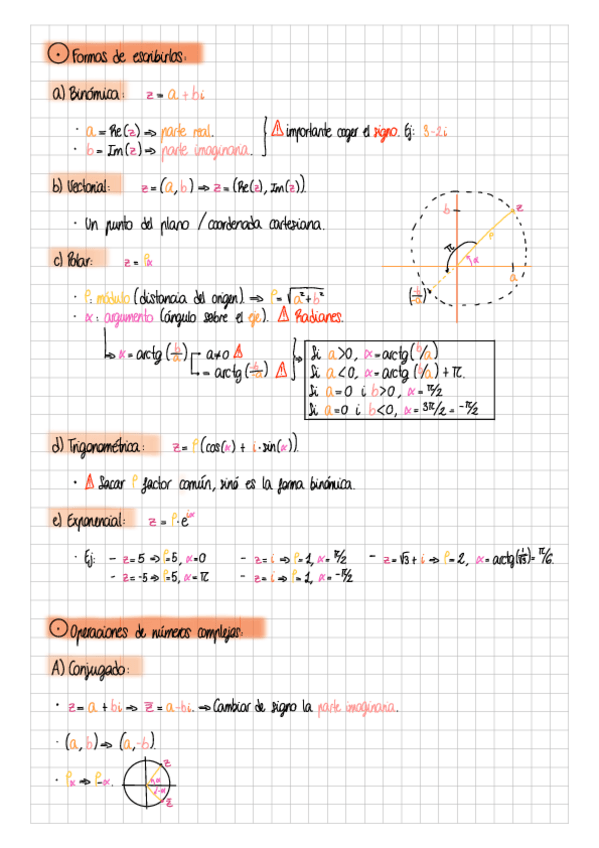 ⊙ Formas de escribirlos:
a) Binómica: z = a + bi
· a = Re(z) ⇒ parte real.
· b = Im(z) ⇒ parte imaginaria.
⚠ importante coger el signo. Ej: 3-2i
b) Vectorial: z = (a, b) ⇒ z = (Re(z), Im(z))
· Un punto del plano / coordenada cartesiana.
b
z
π
ρ
α
a
(-b/-a)
c) Polar: z = ρα
· ρ: módulo (distancia del origen). ⇒ ρ = √a²+b²
· α: argumento (ángulo sobre el eje). ⚠ Radianes.
α = arctg (b/a) a≠0 ⚠
= arctg (-b/-a) ⚠
Si a>0, α = arctg (b/a)
Si a<0, α = arctg (b/a) + π.
Si a=0 i b>0, α = π/2
Si a=0 i b<0, α = 3π/2 = -π/2
d) Trigonométrica: z = ρ(cos(α) + i·sin(α)).
· ⚠ Sacar ρ factor común, sinó es la forma binómica.
e) Exponencial: z = ρ·e^iα
· Ej: - z=5 ⇒ ρ=5, α=0 - z=i ⇒ ρ=1, α=π/2 - z=√3+i ⇒ ρ=2, α=arctg(1/√3)=π/6.
- z=-5 ⇒ ρ=5, α=π - z=i ⇒ ρ=1, α=-π/2
⊙ Operaciones de números complejos:
A) Conjugado:
· z = a + bi ⇒ z̅ = a-bi. ⇒ Cambiar de signo la parte imaginaria.
· (a, b) ⇒ (a,-b).
· ρα ⇒ ρ-α.
z
α
-α
z̅